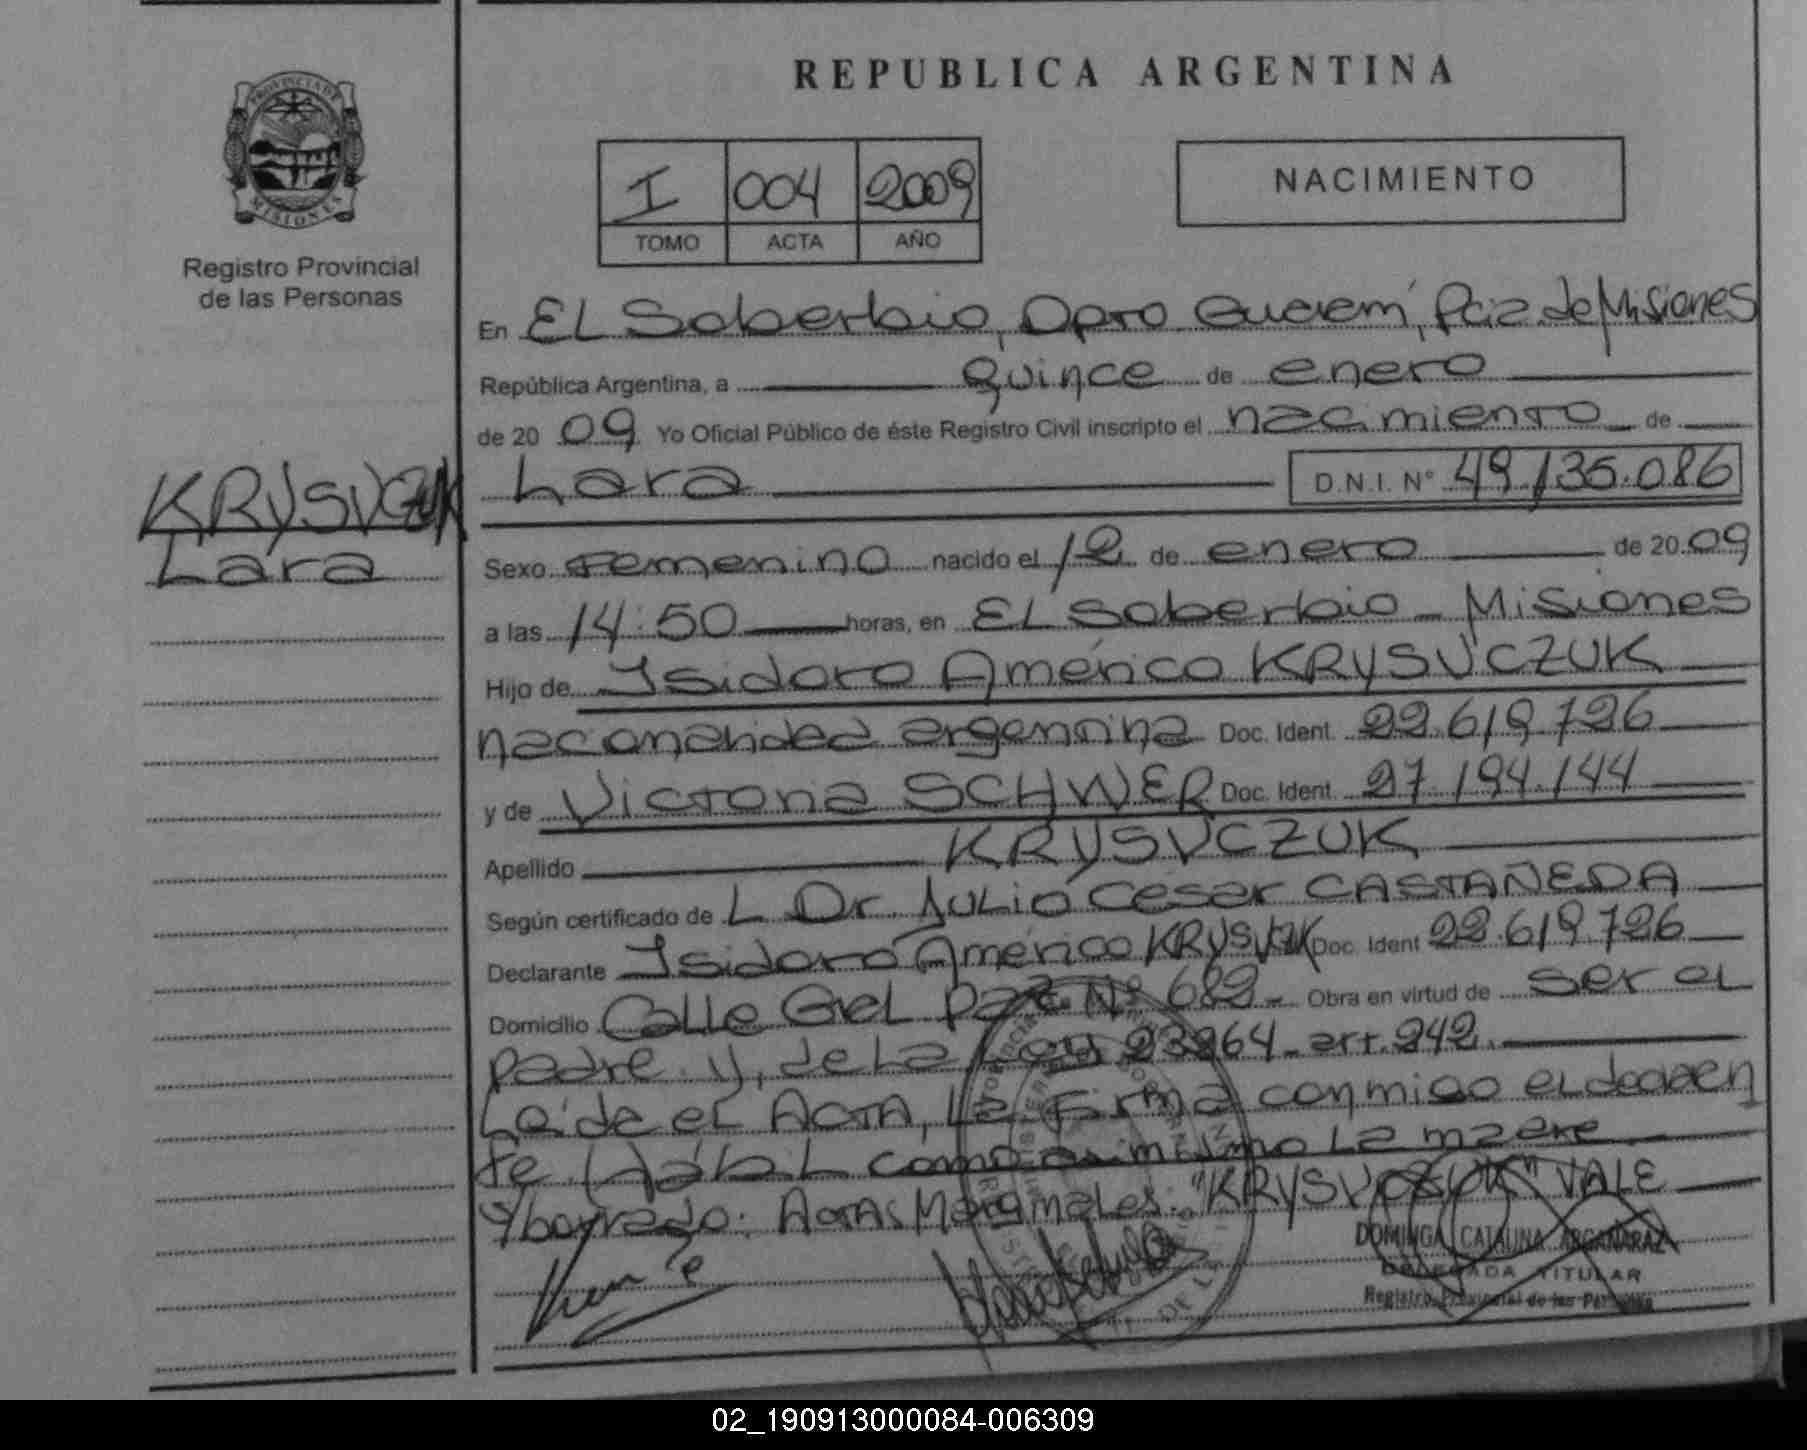 PROVINCIA DE
MISIONES
Registro Provincial
de las Personas
KRYSVCZUK
Lara
REPUBLICA ARGENTINA
I 004 2009
TOMO ACTA AÑO
NACIMIENTO
En EL Soberbio, Dpto Guaraní, Pcia de Misiones
República Argentina, a Quince de enero
de 20 09 Yo Oficial Público de éste Registro Civil inscripto el nacimiento de
Lara D.N.I. N° 49.135.086
Sexo Femenino nacido el 12 de enero de 20 09
a las 14:50 horas, en EL Soberbio - Misiones
Hijo de Isidoro Américo KRYSVCZUK
nacionalidad argentina Doc. Ident. 22.619.726
y de Victoria SCHWER Doc. Ident. 27.194.144
Apellido KRYSVCZUK
Según certificado de L Dr. Julio César CASTAÑEDA
Declarante Isidoro Américo KRYSVZUK Doc. Ident 22.619.726
Domicilio Calle Gral Paz N° 682- Obra en virtud de ser el
padre y, de La Ley 23264 - art. 242.
Leída el ACTA, La Firma conmigo el
Fe. como asimismo La madre
S/borrado: ACTAS Marginales: "KRYSVCZUK" VALE
DOMINGA CATALINA ARGAÑARAZ
DELEGADA TITULAR
Registro Provincial de las Personas
02_190913000084-006309